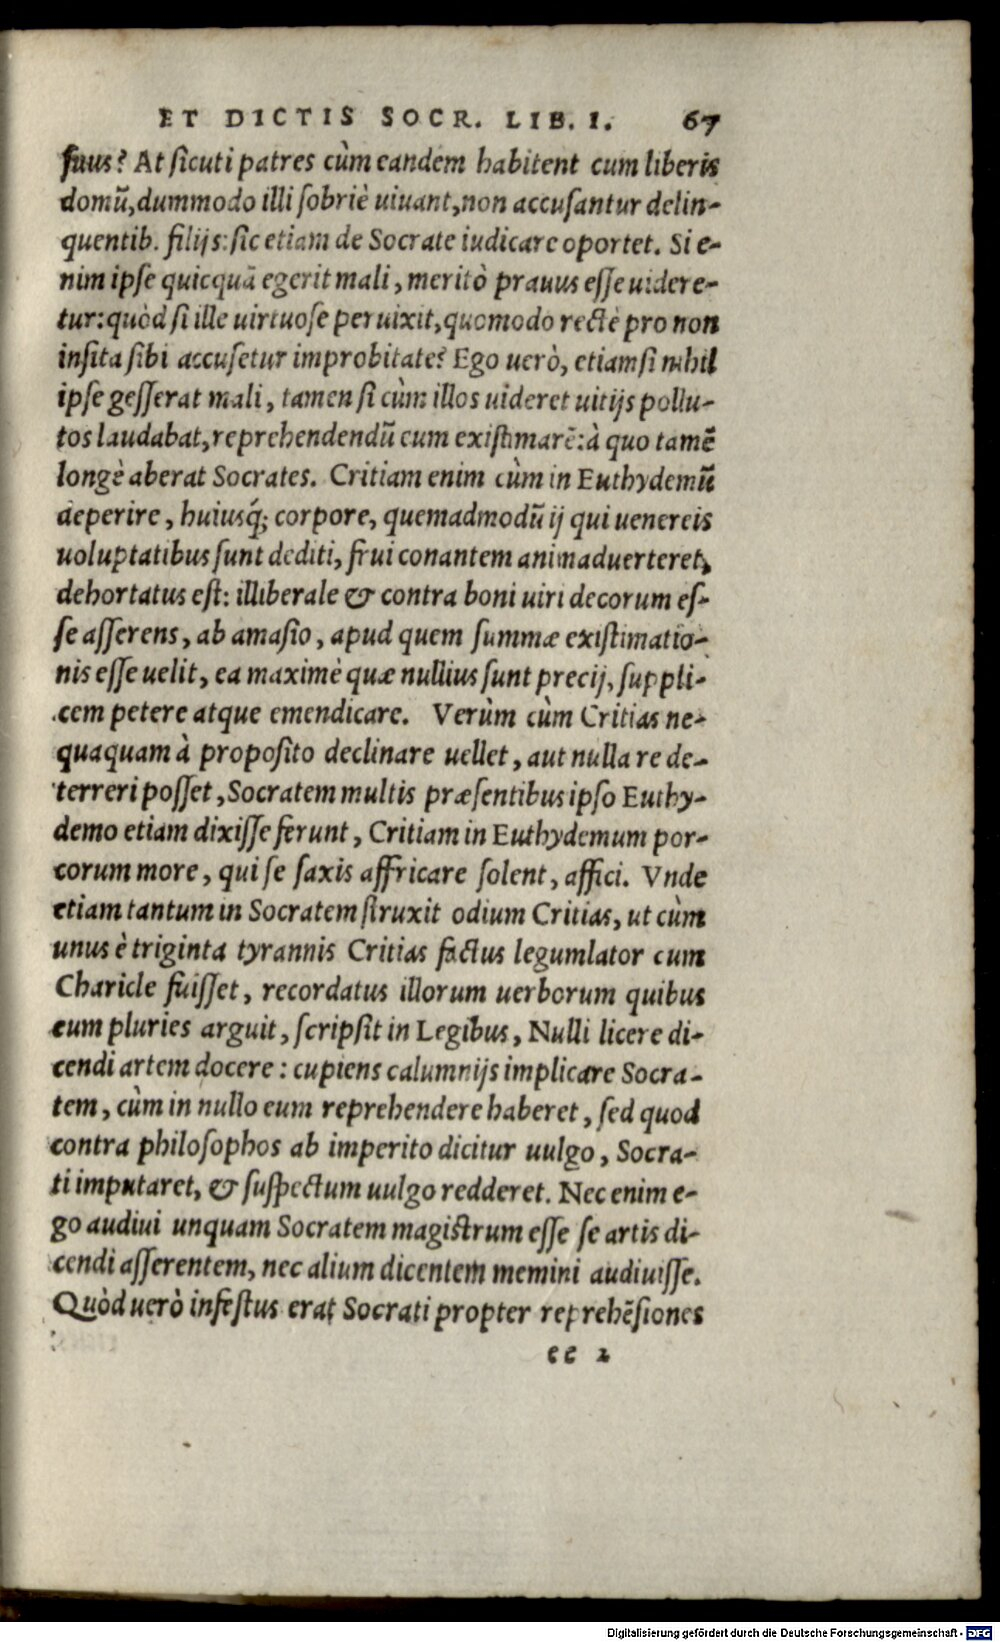 ET DICTIS SOCR. LIB. I. 67
suus? At sicuti patres cùm eandem habitent cum liberis
domū, dummodo illi sobriè uiuant, non accusantur delin-
quentib. filijs: sic etiam de Socrate iudicare oportet. Si e-
nim ipse quicquā egerit mali, meritò prauus esse uidere-
tur: quòd si ille uirtuose peruixit, quomodo rectè pro non
insita sibi accusetur improbitate? Ego uerò, etiamsi nihil
ipse gesserat mali, tamen si cùm illos uideret uitijs pollu-
tos laudabat, reprehendendū eum existimarē: à quo tamē
longè aberat Socrates. Critiam enim cùm in Euthydemū
deperire, huiusq́; corpore, quemadmodū ij qui uenereis
uoluptatibus sunt dediti, frui conantem animaduerteret,
dehortatus est: illiberale & contra boni uiri decorum es-
se asserens, ab amasio, apud quem summæ existimatio-
nis esse uelit, ea maximè quæ nullius sunt precij, suppli-
cem petere atque emendicare. Verùm cùm Critias ne-
quaquam à proposito declinare uellet, aut nulla re de-
terreri posset, Socratem multis præsentibus ipso Euthy-
demo etiam dixisse ferunt, Critiam in Euthydemum por-
corum more, qui se saxis affricare solent, affici. Vnde
etiam tantum in Socratem struxit odium Critias, ut cùm
unus è triginta tyrannis Critias factus legumlator cum
Charicle fuisset, recordatus illorum uerborum quibus
eum pluries arguit, scripsit in Legibus, Nulli licere di-
cendi artem docere: cupiens calumnijs implicare Socra-
tem, cùm in nullo eum reprehendere haberet, sed quod
contra philosophos ab imperito dicitur uulgo, Socra-
ti imputaret, & suspectum uulgo redderet. Nec enim e-
go audiui unquam Socratem magistrum esse se artis di-
cendi asserentem, nec alium dicentem memini audiuisse.
Quòd uerò infestus erat Socrati propter reprehēsiones
ee 2
Digitalisierung gefördert durch die Deutsche Forschungsgemeinschaft - DFG